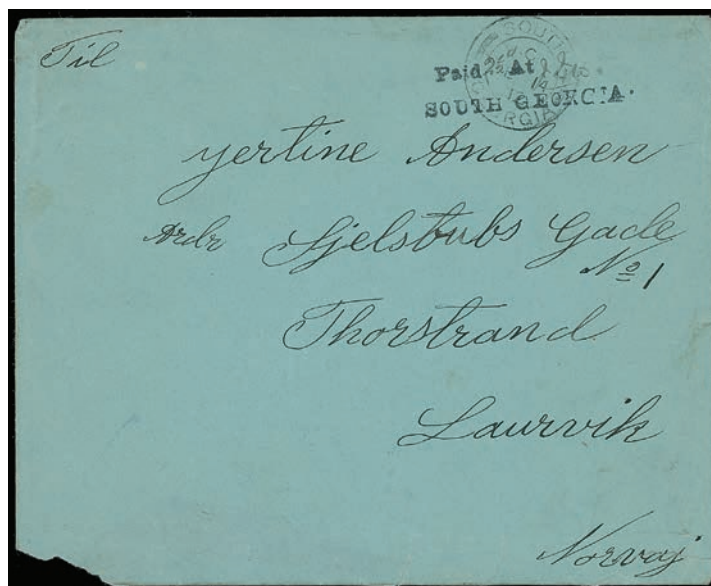 Til
Paid At
SOUTH GEORGIA.
SOUTH
yertine Andersen
Ardr Sjelstubs Gade
No 1
Thorstrand
Laurvik
Norvaj